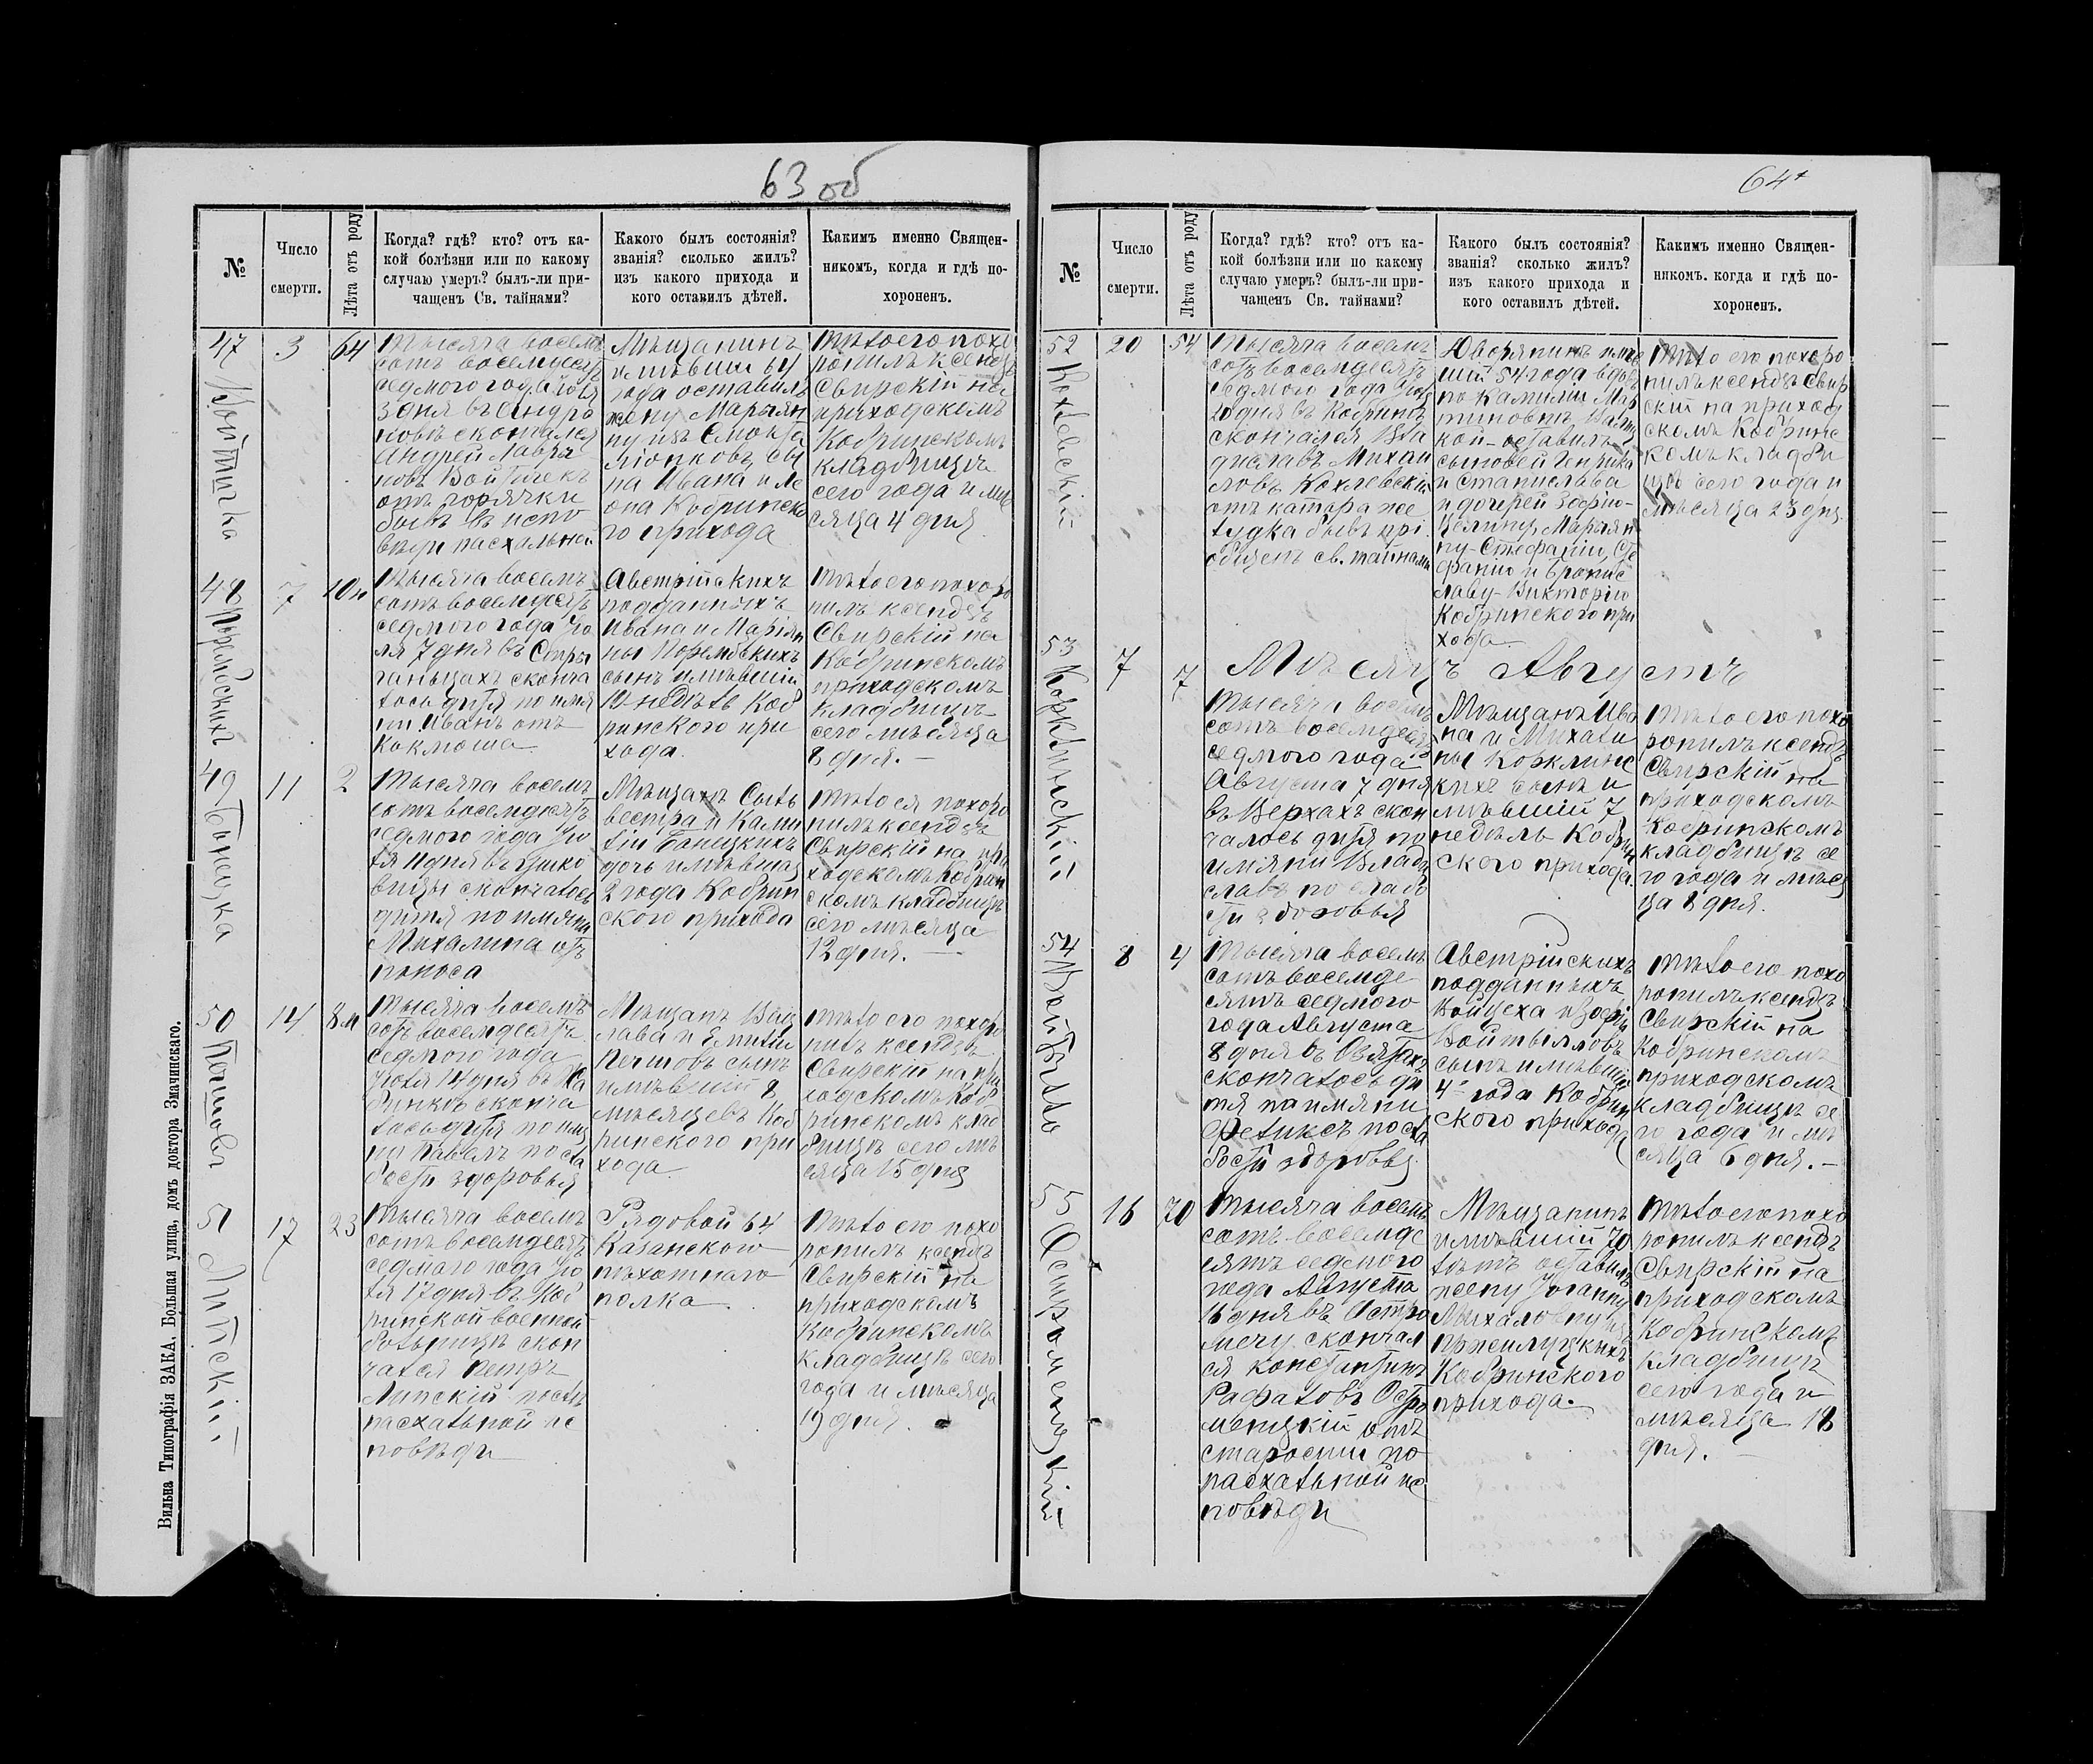 63 об
№
Число
смерти.
Лѣта отъ роду
Когда? гдѣ? кто? отъ ка-
кой болѣзни или по какому
случаю умеръ? былъ-ли при-
чащенъ Св. тайнами?
Какого былъ состоянія?
званія? сколько жилъ?
изъ какого прихода и
кого оставилъ дѣтей.
Какимъ именно Священ-
никомъ, когда и гдѣ по-
хороненъ.
47
3
64
Тысяча восемь
сотъ восемдесятъ
седмого года Іюля
3 дня въ Андро
новѣ скончался
Андрей Лавры
новъ Войтшекъ
отъ горячки
бывъ въ испо
вѣди пасхальной
Мѣщанинъ
имѣвши 64
года оставилъ
жену Марьян
ну изъ
сы
на Ивана и Ле
она Кобринска
го прихода
Тѣло его похо
ронилъ ксендзъ
Свирскій на
приходскомъ
Кобринскомъ
кладбищѣ
сего года и мѣ
сяца 4 дня
48 Порембскихъ
7
10 н
Тысяча восемь
сотъ восемдесятъ
седмого года Ію
ля 7 дня въ Стры
ганьцахъ сконча
лось дитя по имя
ни Иванъ отъ
Коклюша
Австрійскихъ
подданныхъ
Ивана и Маріян
ны Порембскихъ
сынъ имѣвшій
10 недѣль Коб
ринского при
хода.
Тѣло его похоро
нилъ ксендзъ
Свирскій на
Кобринскомъ
приходскомъ
кладбищѣ
сего мѣсяца
8 дня. —
49 Банецка
11
2
Тысяча восемь
сотъ восемдесятъ
седмого года Ію
ля 11 дня въ
скончалось
дитя по имяни
Михалина отъ
поноса
Мѣщанъ Силь
вестра и Ками
ліи Банецкихъ
дочь имѣвшая
2 года Кобрин
ского прихода
Тѣло ея похоро
нилъ ксендзъ
Свирскій на при
ходскомъ Кобрин
скомъ кладбищѣ
сего мѣсяца
12 дня. —
50
14
8 м
Тысяча восемь
сотъ восемдесятъ
седмого года
Іюля 14 дня въ
сконча
лось дитя по имя
ни Павелъ по сла
бости здоровья
Мѣщанъ Вац
лава и Емиліи
сынъ
имѣвшій 8
мѣсяцевъ Коб
ринского при
хода
Тѣло его похоро
нилъ ксендзъ
Свирскій на при
ходскомъ Коб
ринскомъ клад
бищѣ сего мѣ
сяца 15 дня
51 Липскій
17
23
Тысяча восемь
сотъ восемдесятъ
седмого года Ію
ля 17 дня въ Коб
ринской военной
больницѣ скон
чался Петръ
Липскій послѣ
пасхальной ис
повѣди
Рядовой 64
Казанского
пѣхотнаго
полка.
Тѣло его похо
ронилъ ксендзъ
Свирскій на
приходскомъ
Кобринскомъ
кладбищѣ сего
года и мѣсяца
19 дня.
Вильна Типографія ЗАКА. Большая улица, домъ доктора Змачинскаго.
64
№
Число
смерти.
Лѣта отъ роду
Когда? гдѣ? кто? отъ ка-
кой болѣзни или по какому
случаю умеръ? былъ-ли при-
чащенъ Св. тайнами?
Какого былъ состоянія?
званія? сколько жилъ?
изъ какого прихода и
кого оставилъ дѣтей.
Какимъ именно Священ-
никомъ. когда и гдѣ по-
хороненъ.
52 Кохлевскій
20
54
Тысяча восемь
сотъ восемдесятъ
седмого года Іюля
20 дня въ Кобринѣ
скончался Вла
диславъ Михаи
ловъ Кохлевскій
отъ катара же
лудка бывъ прі
общенъ св. тайнами
Дворянинъ имѣв
шій 54 года вдовъ
по Камиліи Мар
тиновнѣ
оставилъ
сыновей Генрика
и Станислава
и дочерей Зофію-
Целину, Марьян
ну-Стефанію, Сте
фанію и Бронис
лаву-Викторію
Кобринского при
хода
Тѣло его похоро
нилъ ксендзъ Свир
скій на приход
скомъ Кобринс
комъ кладби
щѣ сего года и
мѣсяца 23 дня.
Мѣсяцъ Августъ
53
7
7
Тысяча восемь
сотъ восемдесятъ
седмого года
Августа 7 дня
въ Верхахъ скон
чалось дитя по
имяни Влади
славъ по слабо
сти здоровья
Мѣщанъ Ива
на и Михали
ны
сынъ и
мѣвшій 7
недѣль Кобрин
ского прихода.
Тѣло его похо
ронилъ ксендзъ
Свирскій на
приходскомъ
Кобринскомъ
кладбищѣ се
го года и мѣся
ца 8 дня.
54
8
4
Тысяча восемь
сотъ восемде
сятъ седмого
года Августа
8 дня въ
скончалось ди
тя по имяни
Феликсъ по сла
бости здоровья
Австрійскихъ
подданныхъ
Войцеха и Зофіи
сынъ имѣвшій
4 года Кобрин
ского прихода
Тѣло его похо
ронилъ ксендзъ
Свирскій на
Кобринскомъ
приходскомъ
кладбищѣ се
го года и мѣ
сяца 6 дня. —
55 Остромецкій
16
70
Тысяча восемь
сотъ восемде
сятъ седмого
года Августа
16 дня въ Остро
мечу скончал
ся Константинъ
Рафаловъ Остро
мецкій отъ
старости по
пасхальной ис
повѣди
Мѣщанинъ
имѣвшій 70
лѣтъ оставилъ
жену Іоанну
Михаловну изъ
Кобринского
прихода.
Тѣло его похо
ронилъ ксендзъ
Свирскій на
приходскомъ
Кобринскомъ
кладбищѣ
сего года и
мѣсяца 18
дня.